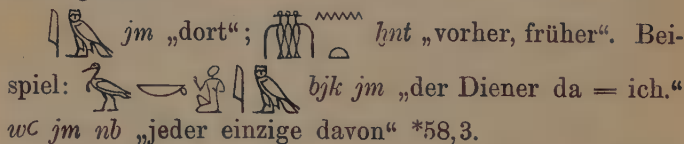 𓇋𓅓 jm „dort“; 𓏃𓈖𓏏 ḫnt „vorher, früher“. Bei-
spiel: 𓅡𓎡𓀀𓇋𓅓 bjk jm „der Diener da = ich.“
wꜥ jm nb „jeder einzige davon“ *58,3.